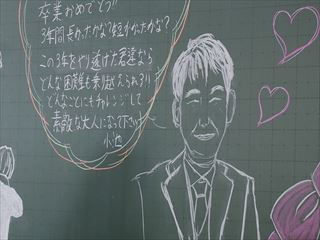 卒業おめでとう!!
3年間長かったかな?短かかったかな?
この3年をやり遂げた君達なら
どんな困難も乗り越えられる?!
どんなことにもチャレンジして
素敵な大人になって下さい
小池